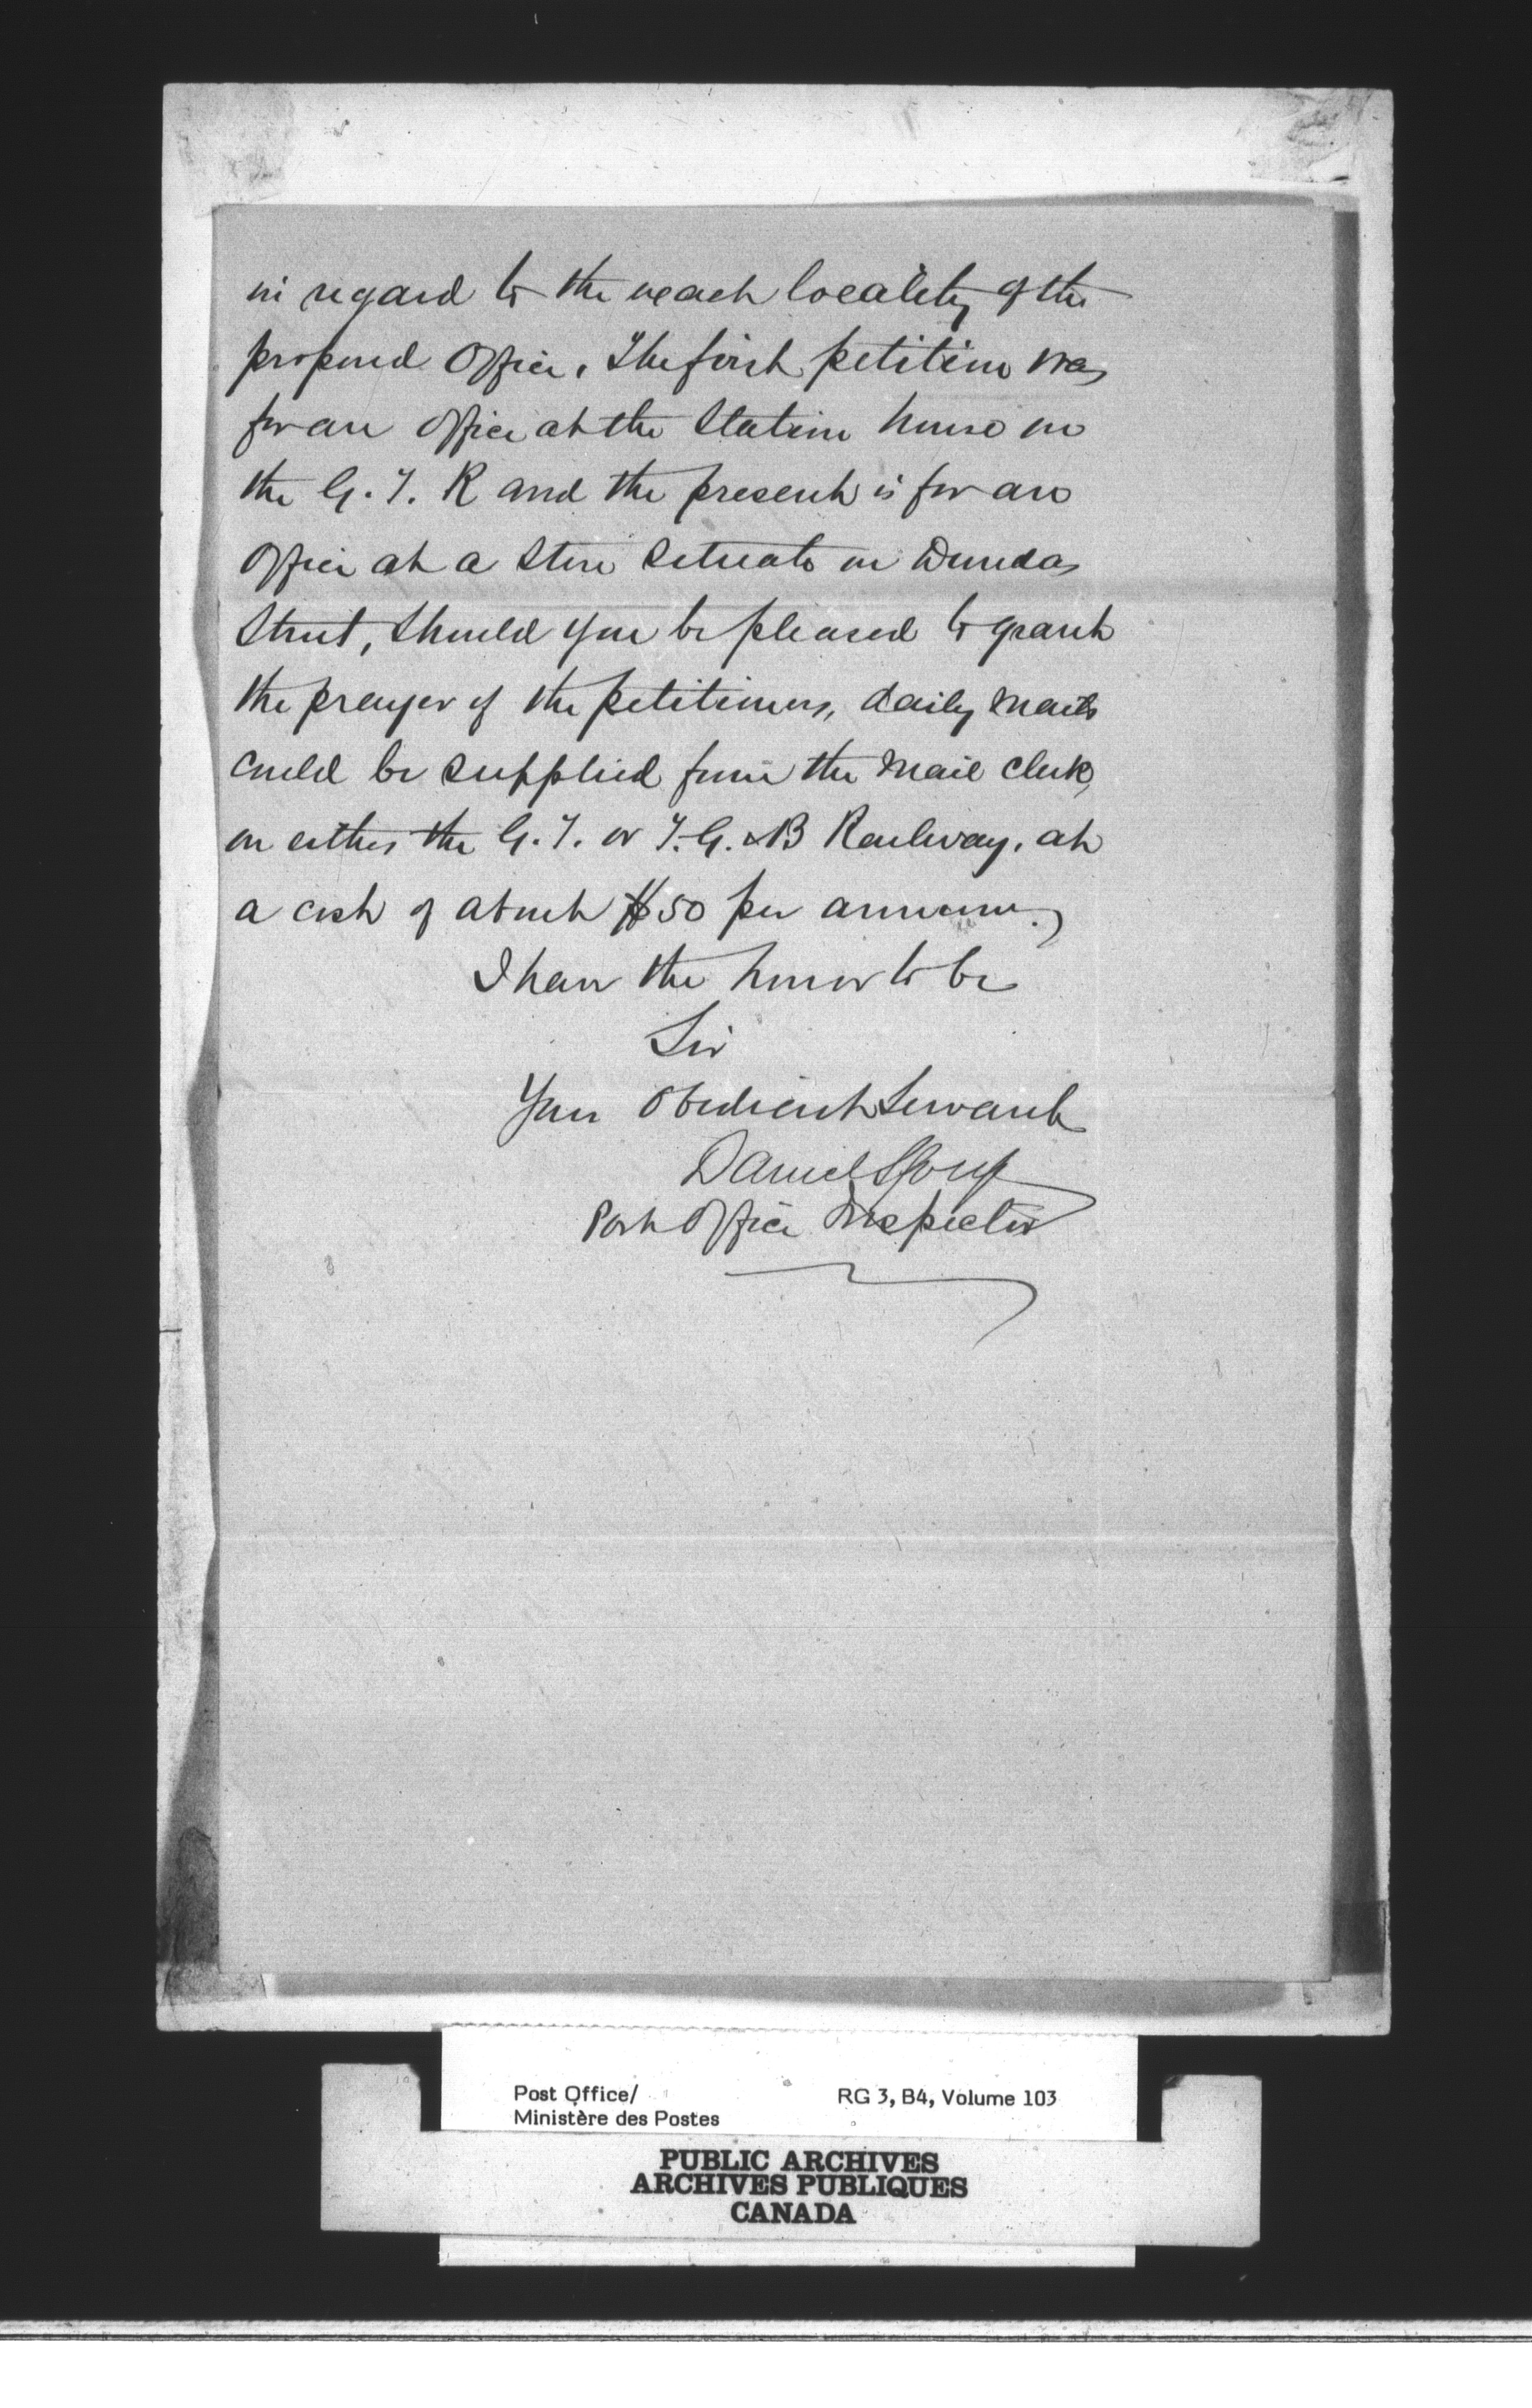 in regard to the exact locality of the
proposed Office. The first petition was
for an Office at the Station house on
the G. T. R and the present is for an
Office at a Store Situate on Dundas
Street, Should you be pleased to grant
the prayer of the petitioners, daily mails
could be supplied from the Mail Clerks
on either the G. T. or T. G. & B Railway, at
a cost of about $50 per annum.
I have the honor to be
Sir
Your Obedient Servant
Daniel Spry
Post Office Inspector
Post Office/
Ministère des Postes
RG 3, B4, Volume 103
PUBLIC ARCHIVES
ARCHIVES PUBLIQUES
CANADA